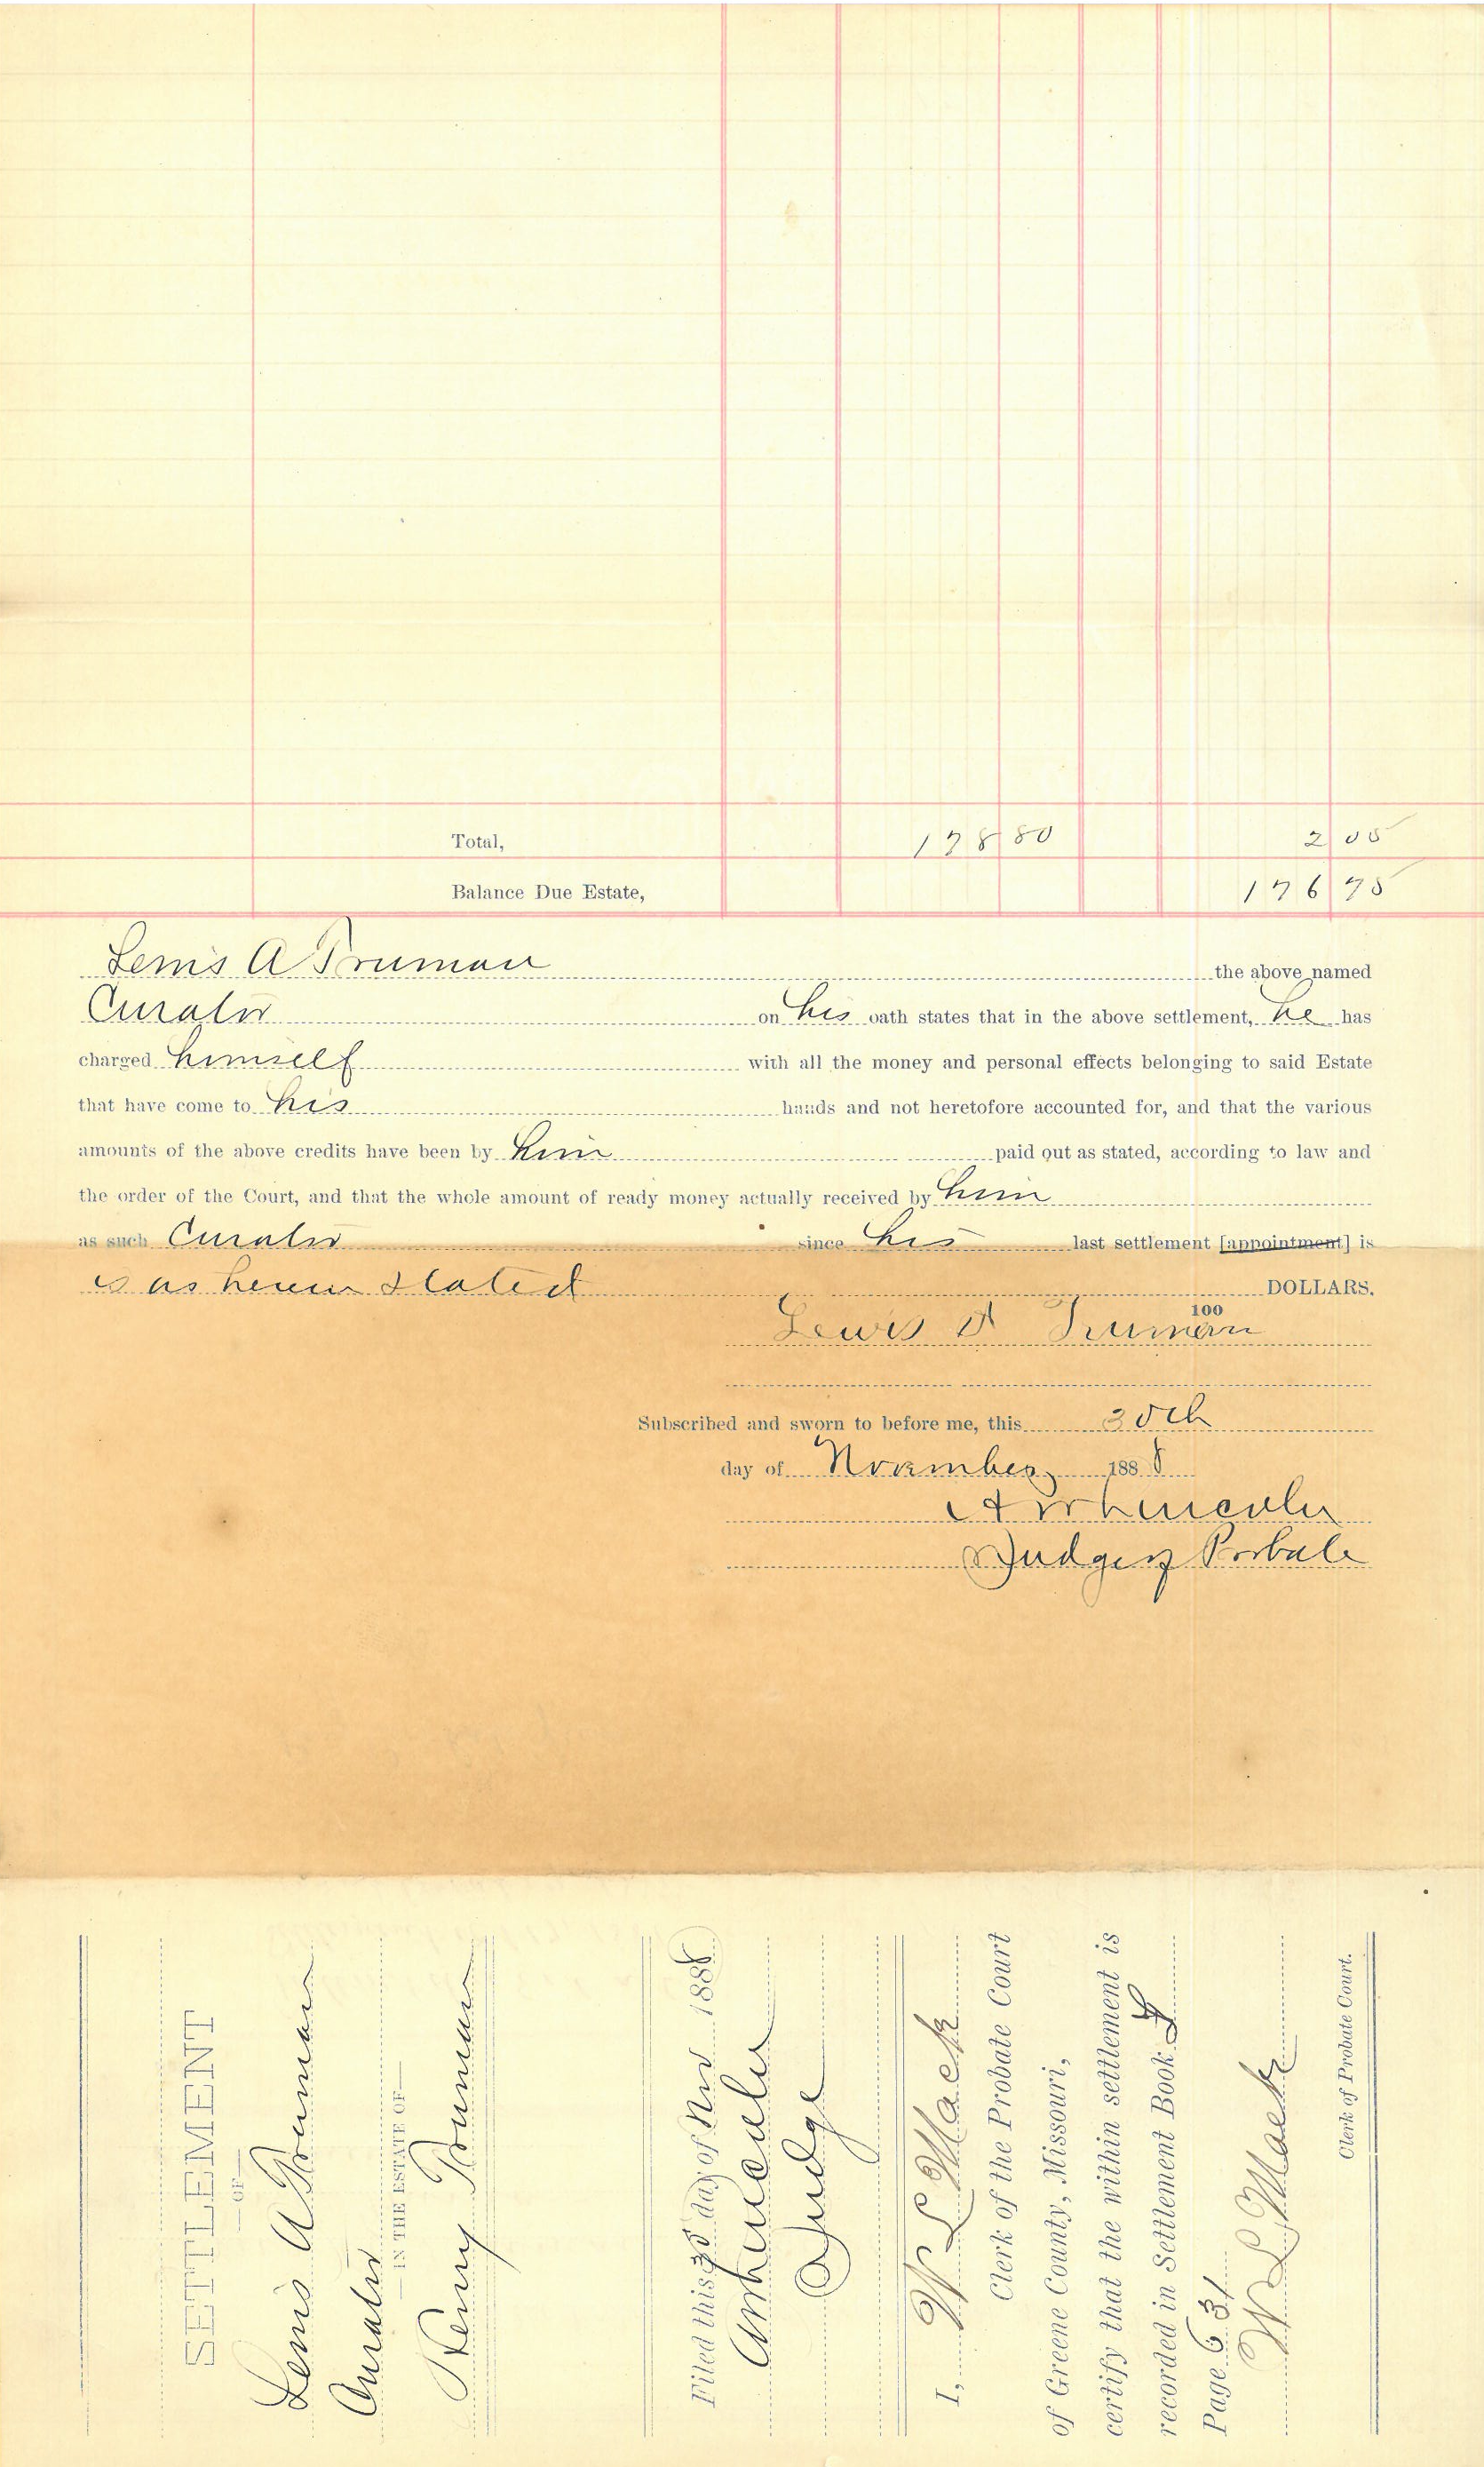 Total, 178 80 2 05
Balance Due Estate, 176 75
Lewis A Truman the above named
Curator on his oath states that in the above settlement, he has
charged himself with all the money and personal effects belonging to said Estate
that have come to his hands and not heretofore accounted for, and that the various
amounts of the above credits have been by him paid out as stated, according to law and
the order of the Court, and that the whole amount of ready money actually received by him
as such Curator since his last settlement [appointment] is
is as herein stated DOLLARS.
100
Lewis A Truman
Subscribed and sworn to before me, this 30th
day of November 1888
A W Lincoln
Judge of Probate
SETTLEMENT
—OF—
Lewis A Truman
Curator
—IN THE ESTATE OF—
Henry Truman
Filed this 30 day of Nov 1888
AW Lincoln
Judge
I, W L Mack
Clerk of the Probate Court
of Greene County, Missouri,
certify that the within settlement is
recorded in Settlement Book
Page 631
W L Mack
Clerk of Probate Court.